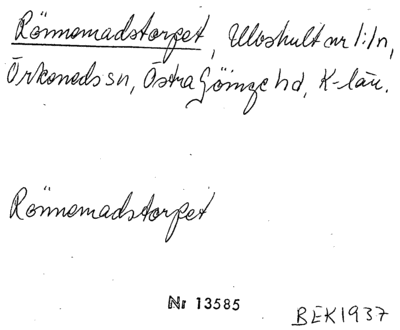 Rönnemadstorpet, Ulvshult nr 1:1n,
Örkeneds sn, Östra Göinge hd, K-län.
Rönnemadstorpet
Nr 13585
BEK1937